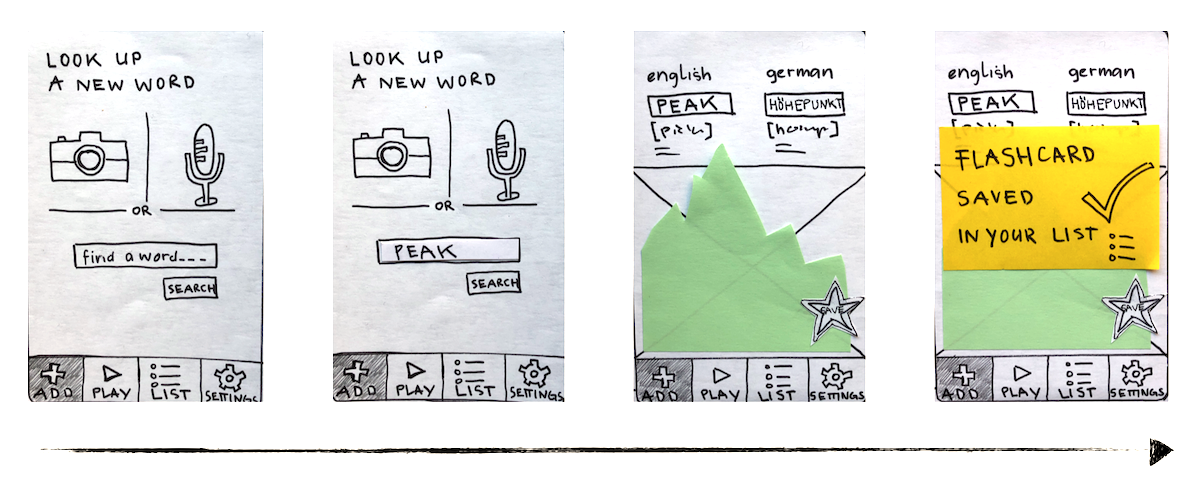 LOOK UP
A NEW WORD
OR
find a word---
SEARCH
ADD PLAY LIST SETTINGS
LOOK UP
A NEW WORD
OR
PEAK
SEARCH
ADD PLAY LIST SETTINGS
english german
PEAK HÖHEPUNKT
SAVE
ADD PLAY LIST SETTINGS
english german
PEAK HÖHEPUNKT
FLASHCARD
SAVED
IN YOUR LIST
SAVE
ADD PLAY LIST SETTINGS